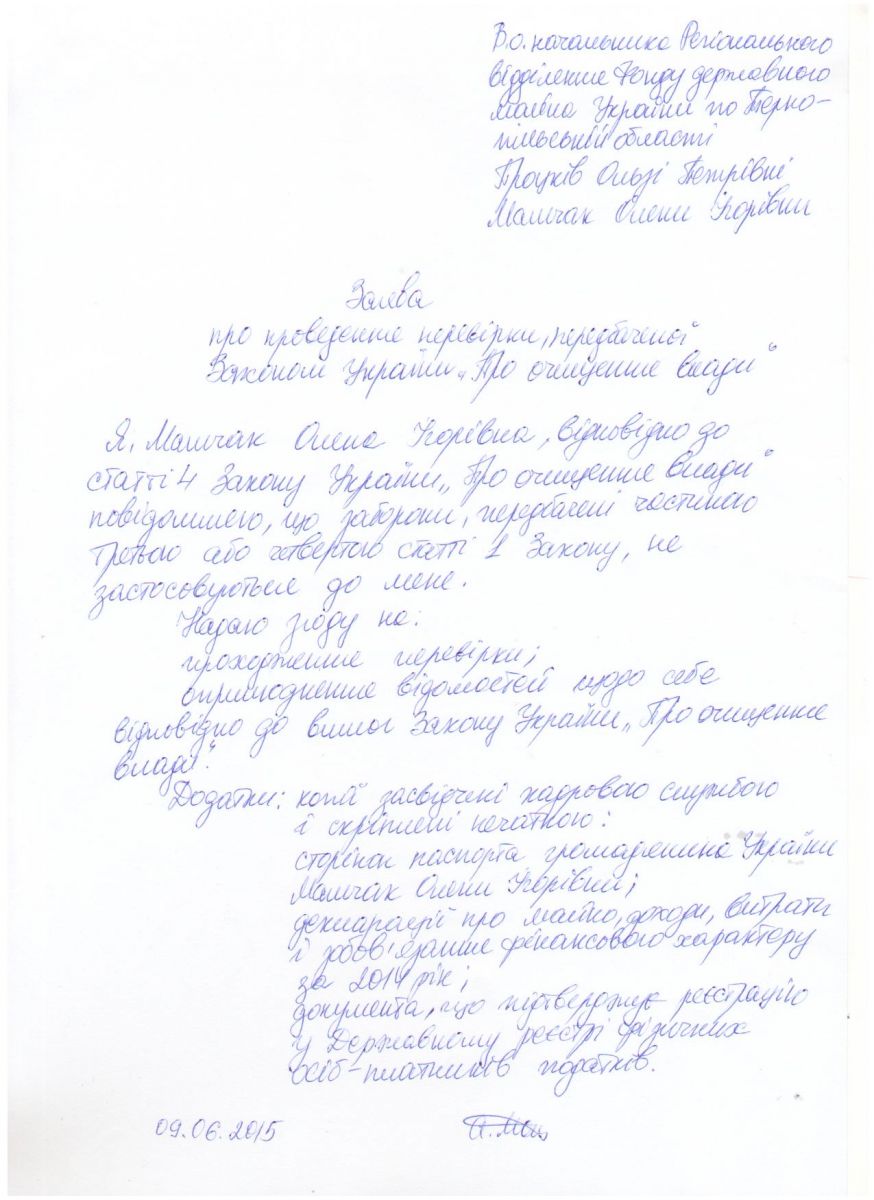 В.о. начальника Регіонального
відділення Фонду державного
майна України по Терно-
пільській області
Процків Ользі Петрівні
Мамчак Олени Ігорівни
Заява
про проведення перевірки, передбаченої
Законом України „Про очищення влади"
Я, Мамчак Олена Ігорівна, відповідно до
статті 4 Закону України „Про очищення влади"
повідомляю, що заборони, передбачені частиною
третьою або четвертою статті 1 Закону, не
застосовуються до мене.
Надаю згоду на:
проходження перевірки;
оприлюднення відомостей щодо себе
відповідно до вимог Закону України „Про очищення
влади".
Додатки: копії засвідчені кадровою службою
і скріплені печаткою:
сторінок паспорта громадянина України
Мамчак Олени Ігорівни;
декларації про майно, доходи, витрати
і зобов'язання фінансового характору
за 2014 рік;
документа, що підтверджує реєстрацію
у Державному реєстрі фізичних
осіб-платників податків.
09.06.2015